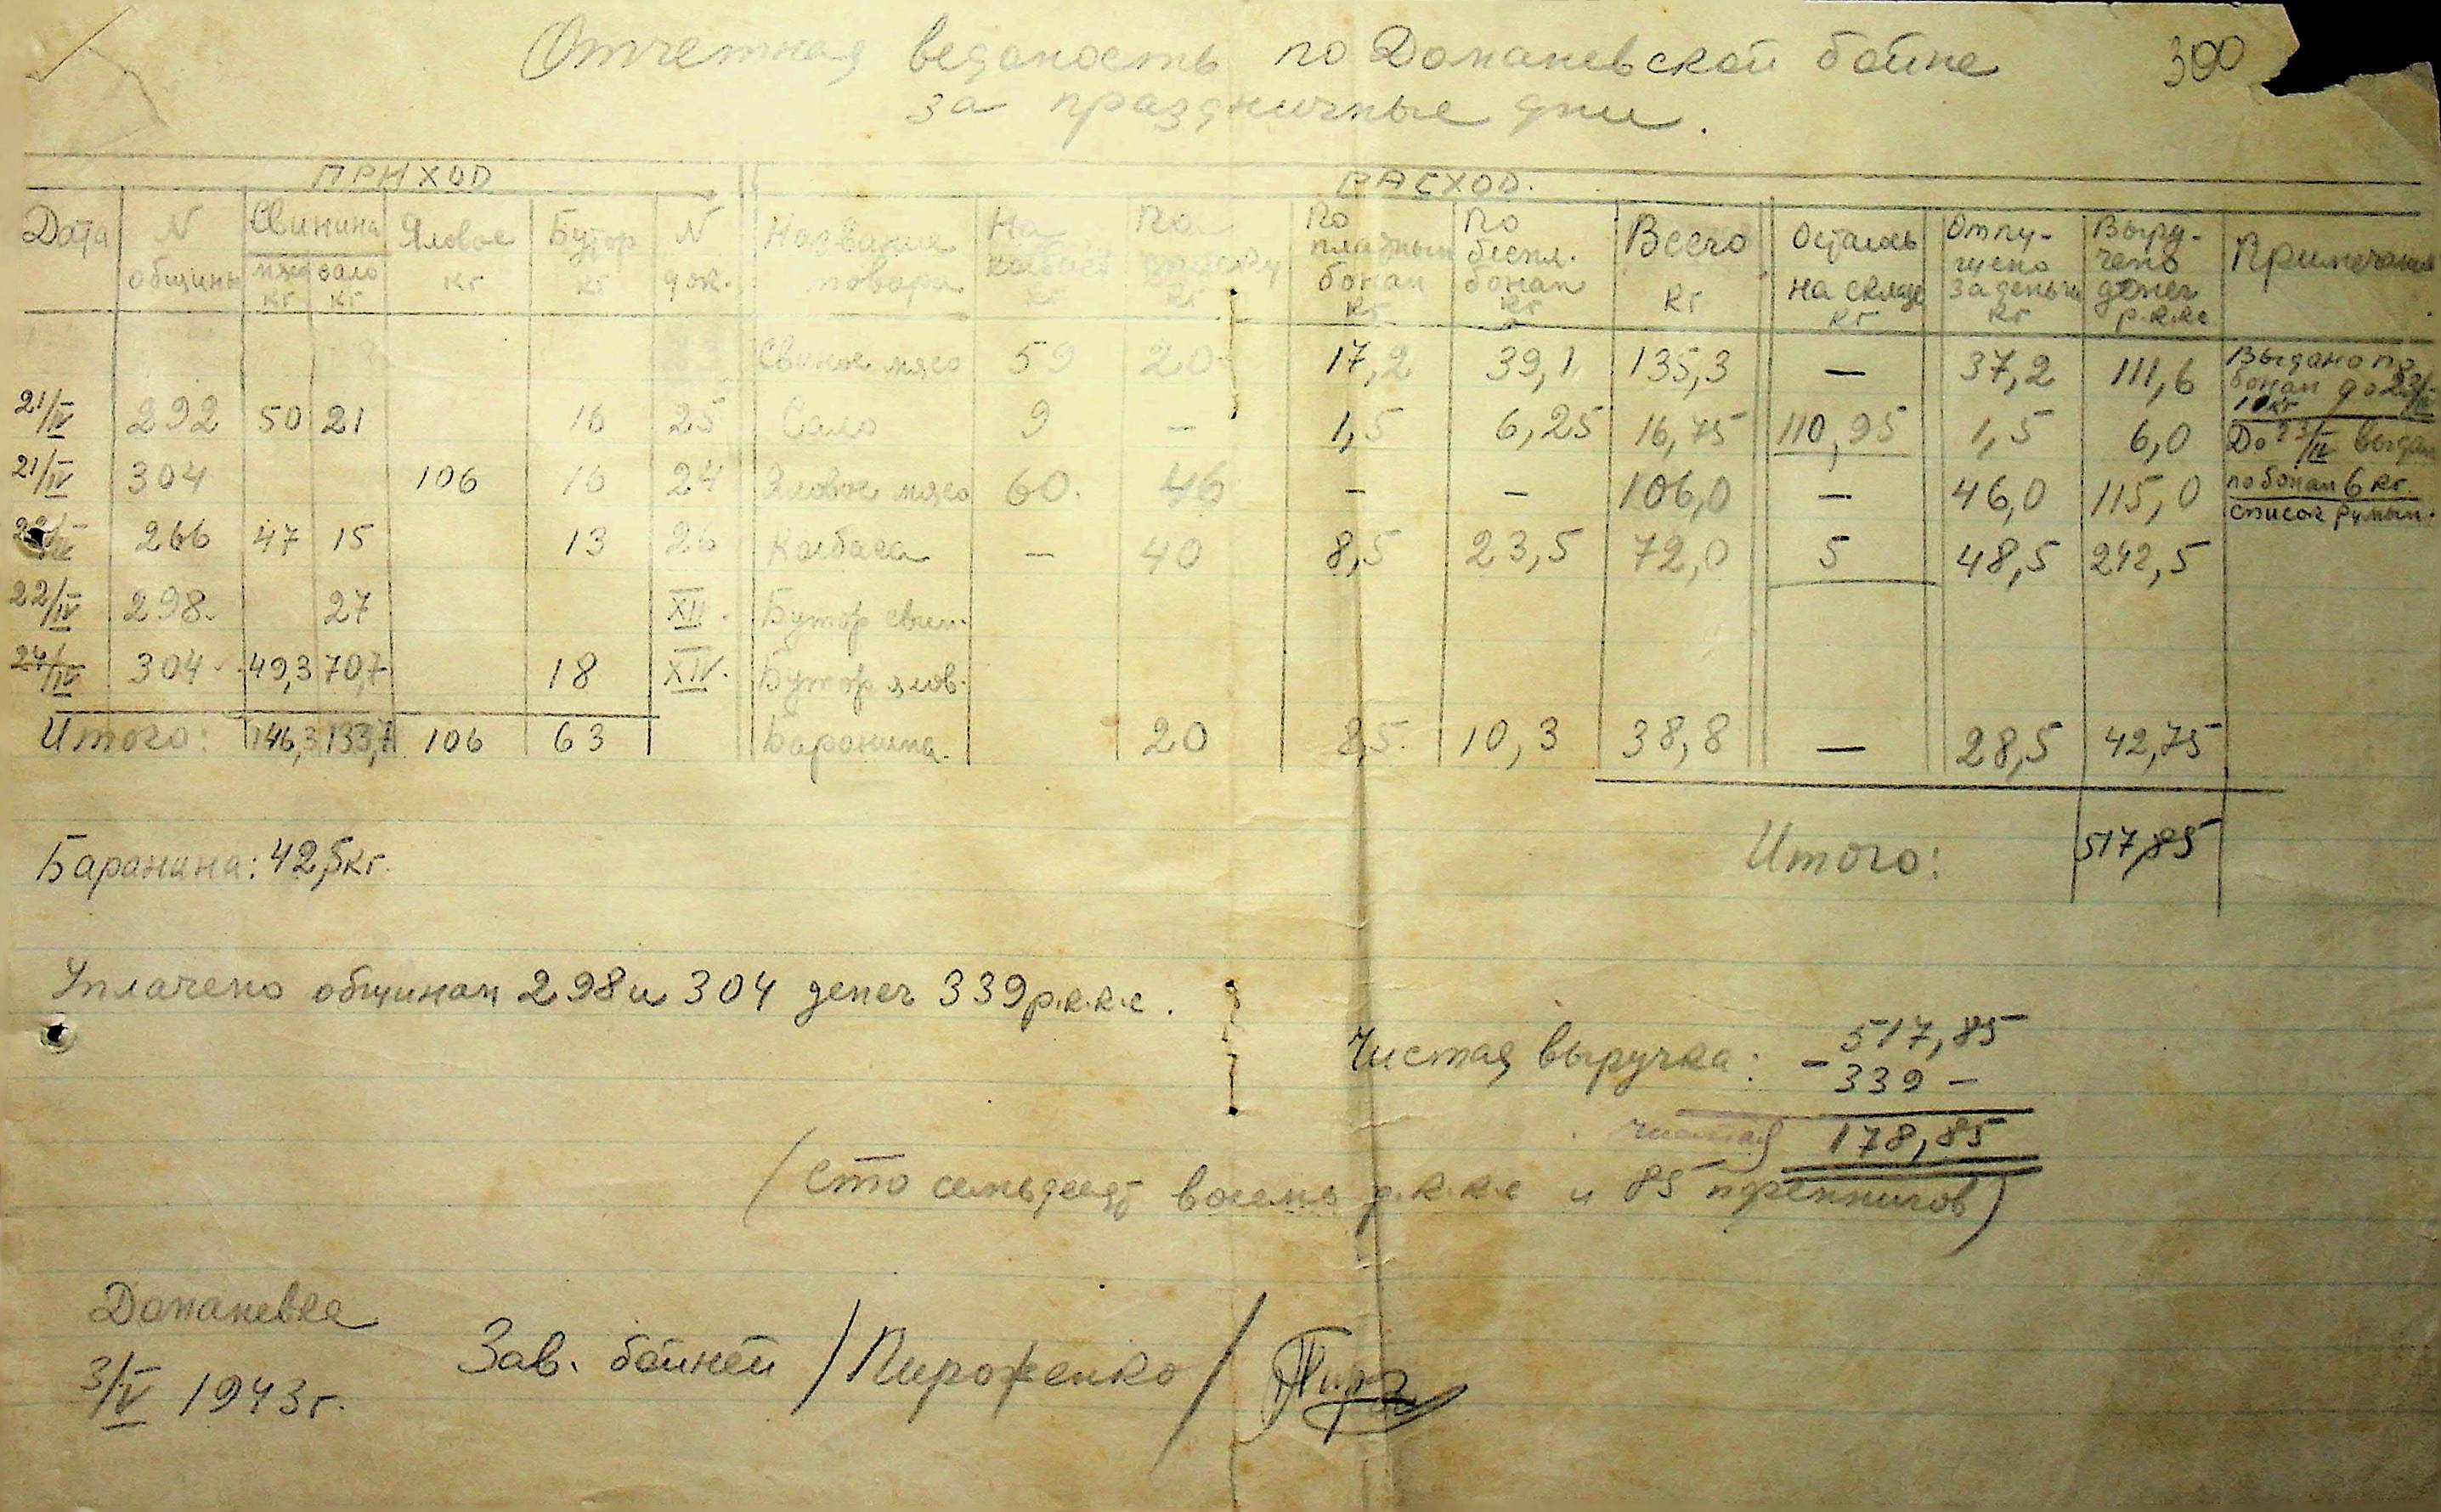 Отчетная ведомость по Доманевской бойне
300
за праздничные дни.
ПРИХОД
РАСХОД.
Дата N общины Свинина мясо кг сало кг Яловое кг Бутор кг N док. Название товара На кг По списку кг По платным бонам кг По беспл. бонам кг Всего кг Осталось на складе кг Отпущено за деньги кг Выручено денег р.к.к.с Примечания
Свиное мясо 59 20 17,2 39,1 135,3 — 37,2 111,6 Выдано по бонам до 23/IV 10 кг
21/IV 292 50 21 16 25 Сало 9 — 1,5 6,25 16,75 110,95 1,5 6,0 До 23/IV выдан
21/IV 304 106 16 24 Яловое мясо 60. 46 — — 106,0 — 46,0 115,0 по бонам 6 кг. список румын.
266 47 15 13 26 Колбаса — 40 8,5 23,5 72,0 5 48,5 242,5
22/IV 298. 27 XII. Бутор свин.
24/IV 304 49,3 70,7 18 XIV. Бутор ялов.
Итого: 146,3 133,7 106 63 Баранина. 20 8,5 10,3 38,8 — 28,5 42,75
Баранина: 42,5кг.
Итого: 517,85
Уплачено общинам 298 и 304 денег 339 р.к.к.с.
Чистая выручка: 517,85
- 339 —
чистая 178,85
(Сто семьдесят восемь р.к.к.с и 85 пфеннигов)
Доманевка
3/V 1943г.
Зав. бойней /Пироженко/